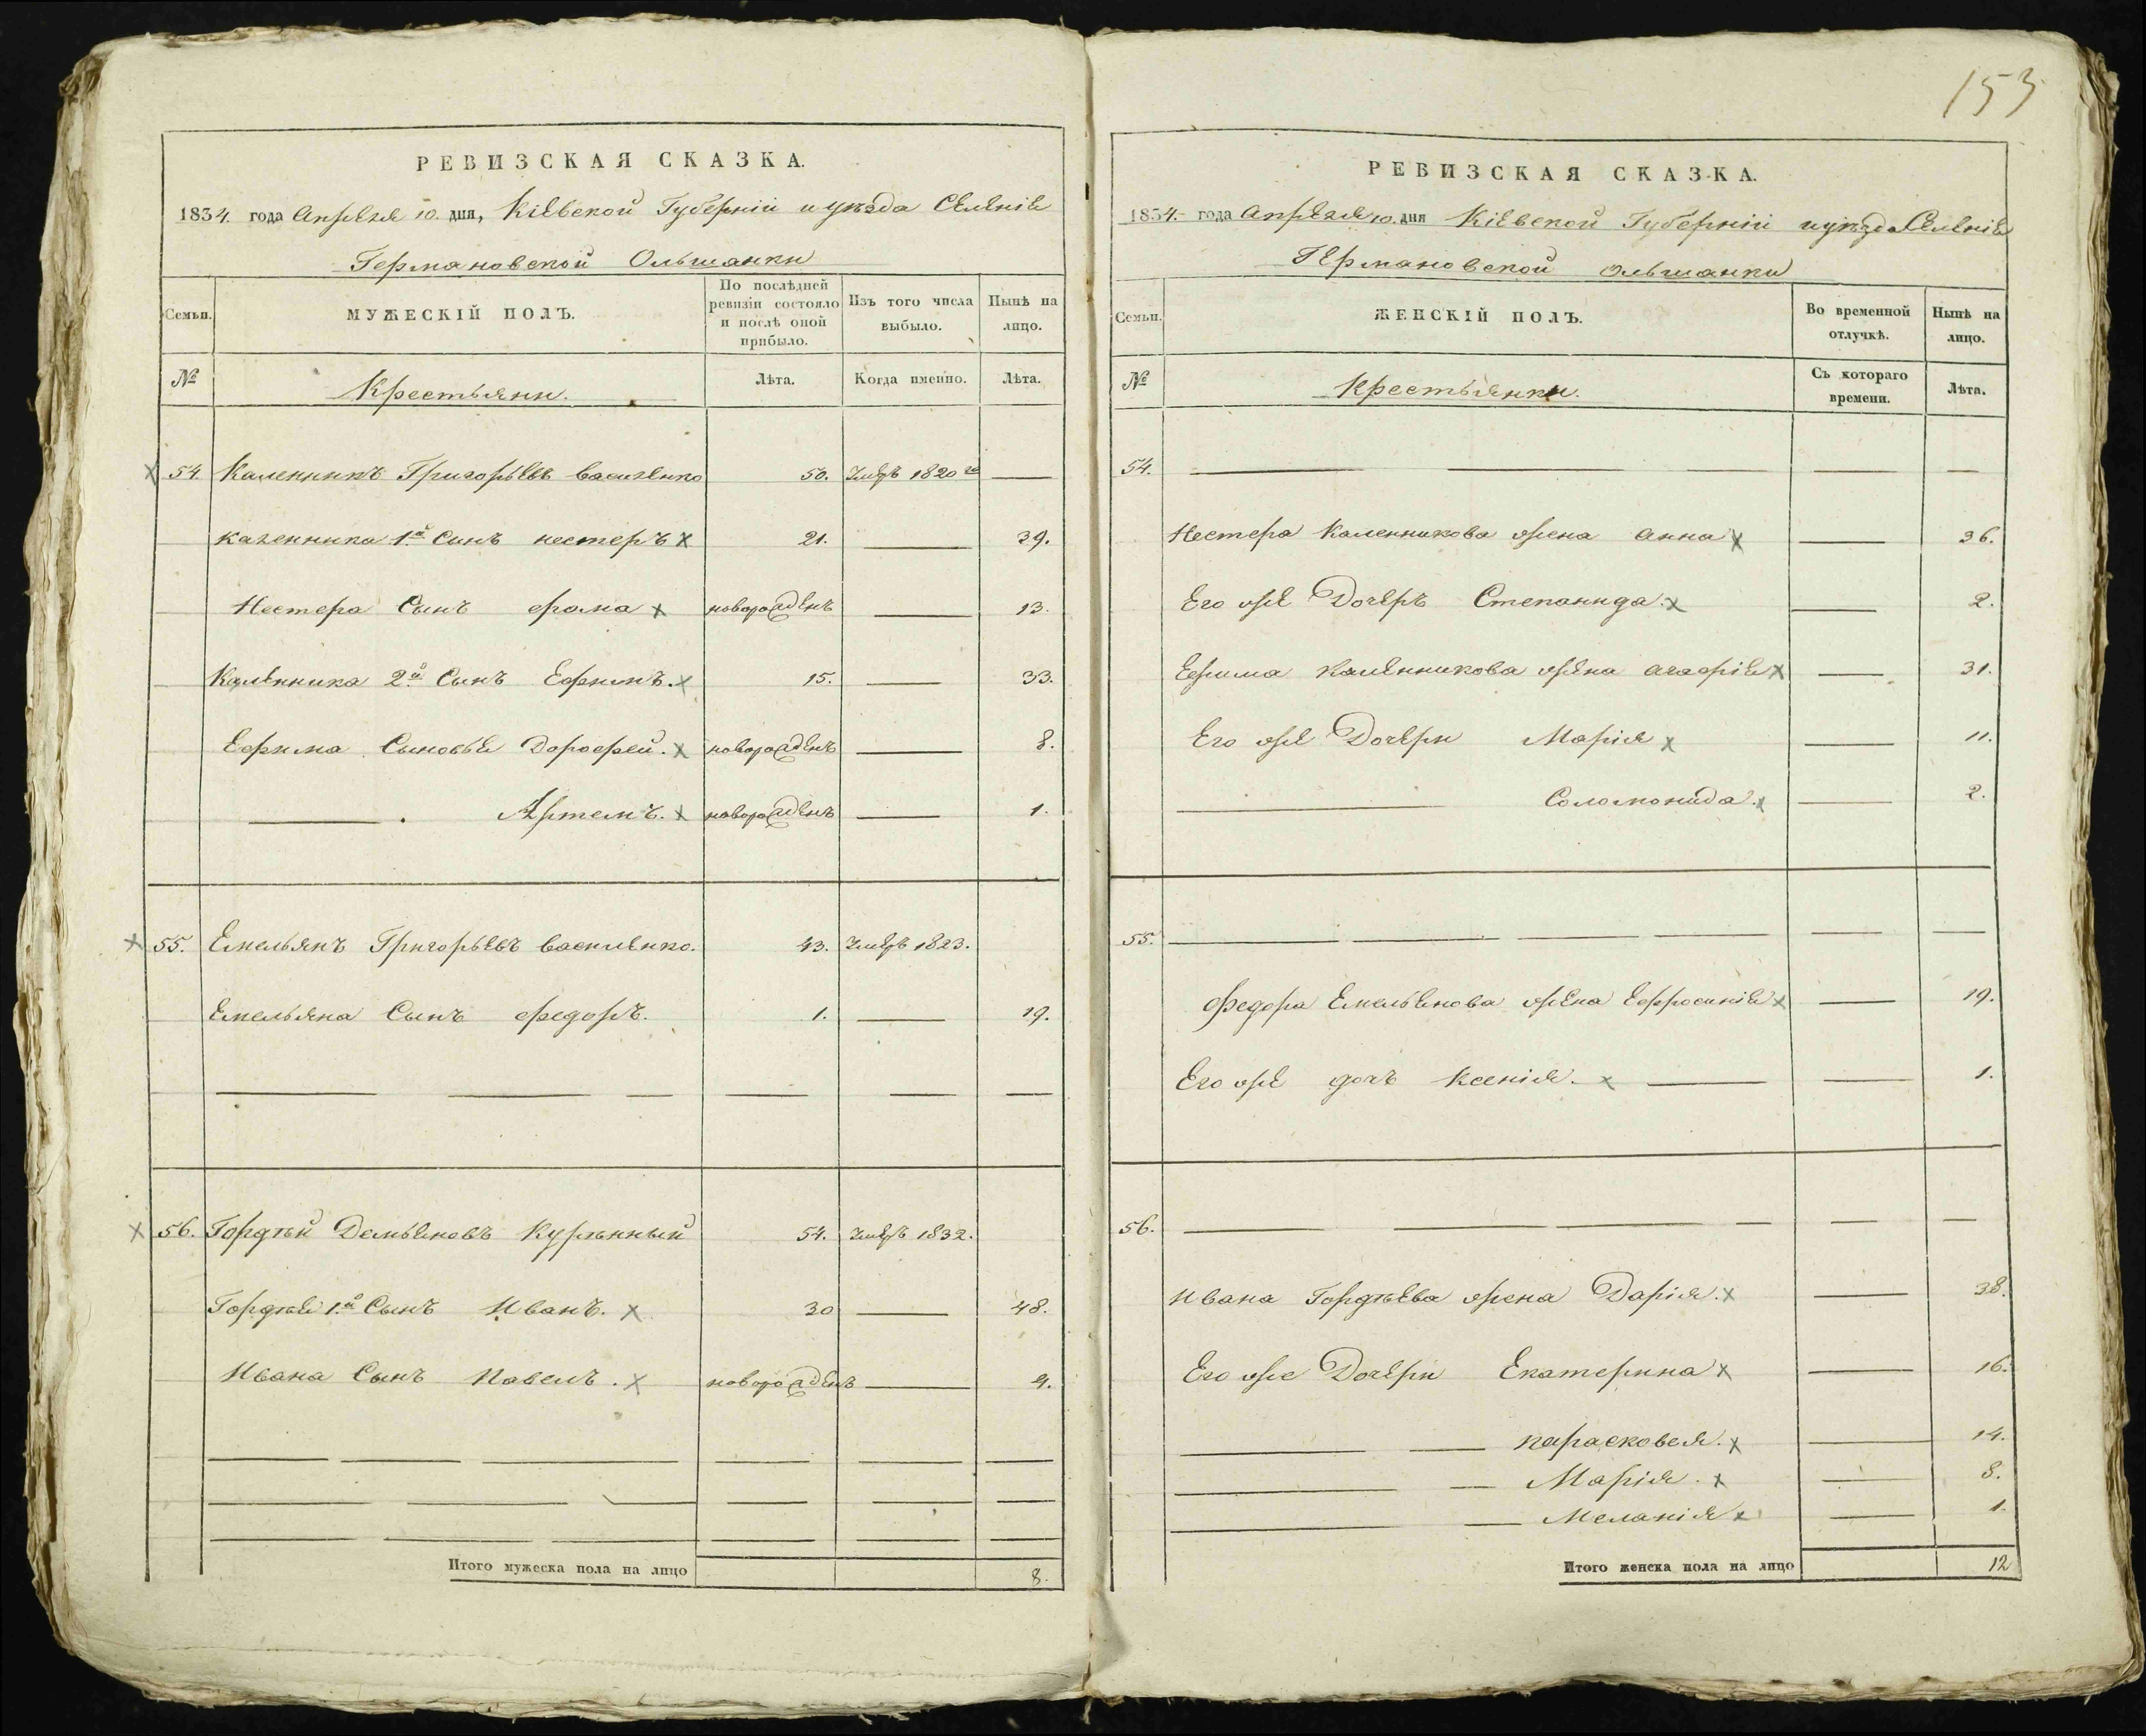 153
РЕВИЗСКАЯ СКАЗКА.
1834. года Апреля 10. дня, Кіевской Губерніи и уѣзда Селенія
Германовской Ольшанки
Семьи.
МУЖЕСКІЙ ПОЛЪ.
По послѣдней
ревизіи состояло
и послѣ оной
прибыло.
Изъ того числа
выбыло.
Нынѣ на
лицо.
№
Крестьяни.
Лѣта.
Когда именно.
Лѣта.
54. Каленникъ Григорьевъ Василенко 50. Умеръ 1820го
Каленника 1й Сынъ нестеръ 21. 39.
Нестера Сынъ фома новорожденъ 13.
Каленника 2й Сынъ Ефимъ. 15. 33.
Ефима Сыновья Дорофей. новорожденъ 8.
Артемъ. новорожденъ 1.
55. Емельянъ Григорьевъ василенко. 43. Умеръ 1823.
Емельяна Сынъ федоръ. 1. 19.
56. Гордѣй Демьяновъ Курѣнный 54. Умеръ 1832.
Гордѣя 1й Сынъ Иванъ. 30 48.
Ивана Сынъ Павелъ. новорожденъ 4.
Итого мужеска пола на лицо 8.
РЕВИЗСКАЯ СКАЗКА.
1834. года Апреля 10. дня Кіевской Губерніи и уѣзда Селенія
Германовской Ольшанки
Семьи.
ЖЕНСКІЙ ПОЛЪ.
Во временной
отлучкѣ.
Нынѣ на
лицо.
№
Крестьянки.
Съ котораго
времени.
Лѣта.
54.
Нестера Каленникова жена анна 36.
Его же Дочеръ Степанида. 2.
Ефима Каленникова жена агафія 31.
Его же Дочери Марія 11.
Соломонида. 2.
55.
Федора Емельянова жена Ефросинія 19.
Его же дочъ Ксенія. 1.
56.
Ивана Гордѣева жена Дарія. 38.
Его же Дочери Екатерина 16.
парасковея. 14.
Марія. 8.
Меланія 1.
Итого женска пола на лицо 12